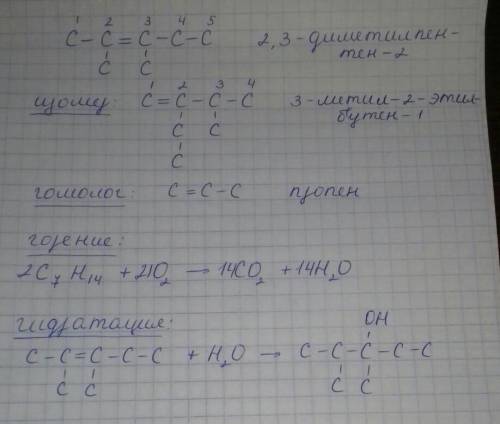 1 2 3 4 5
C - C = C - C - C 2,3-диметилпен-
C C тен-2
изомер: 1 2 3 4
C = C - C - C 3-метил-2-этил-
C C бутен-1
C
гомолог: C = C - C пропен
горение:
2C₇H₁₄ + 21O₂ → 14CO₂ + 14H₂O
гидратация:
OH
C - C = C - C - C + H₂O → C - C - C - C - C
C C C C